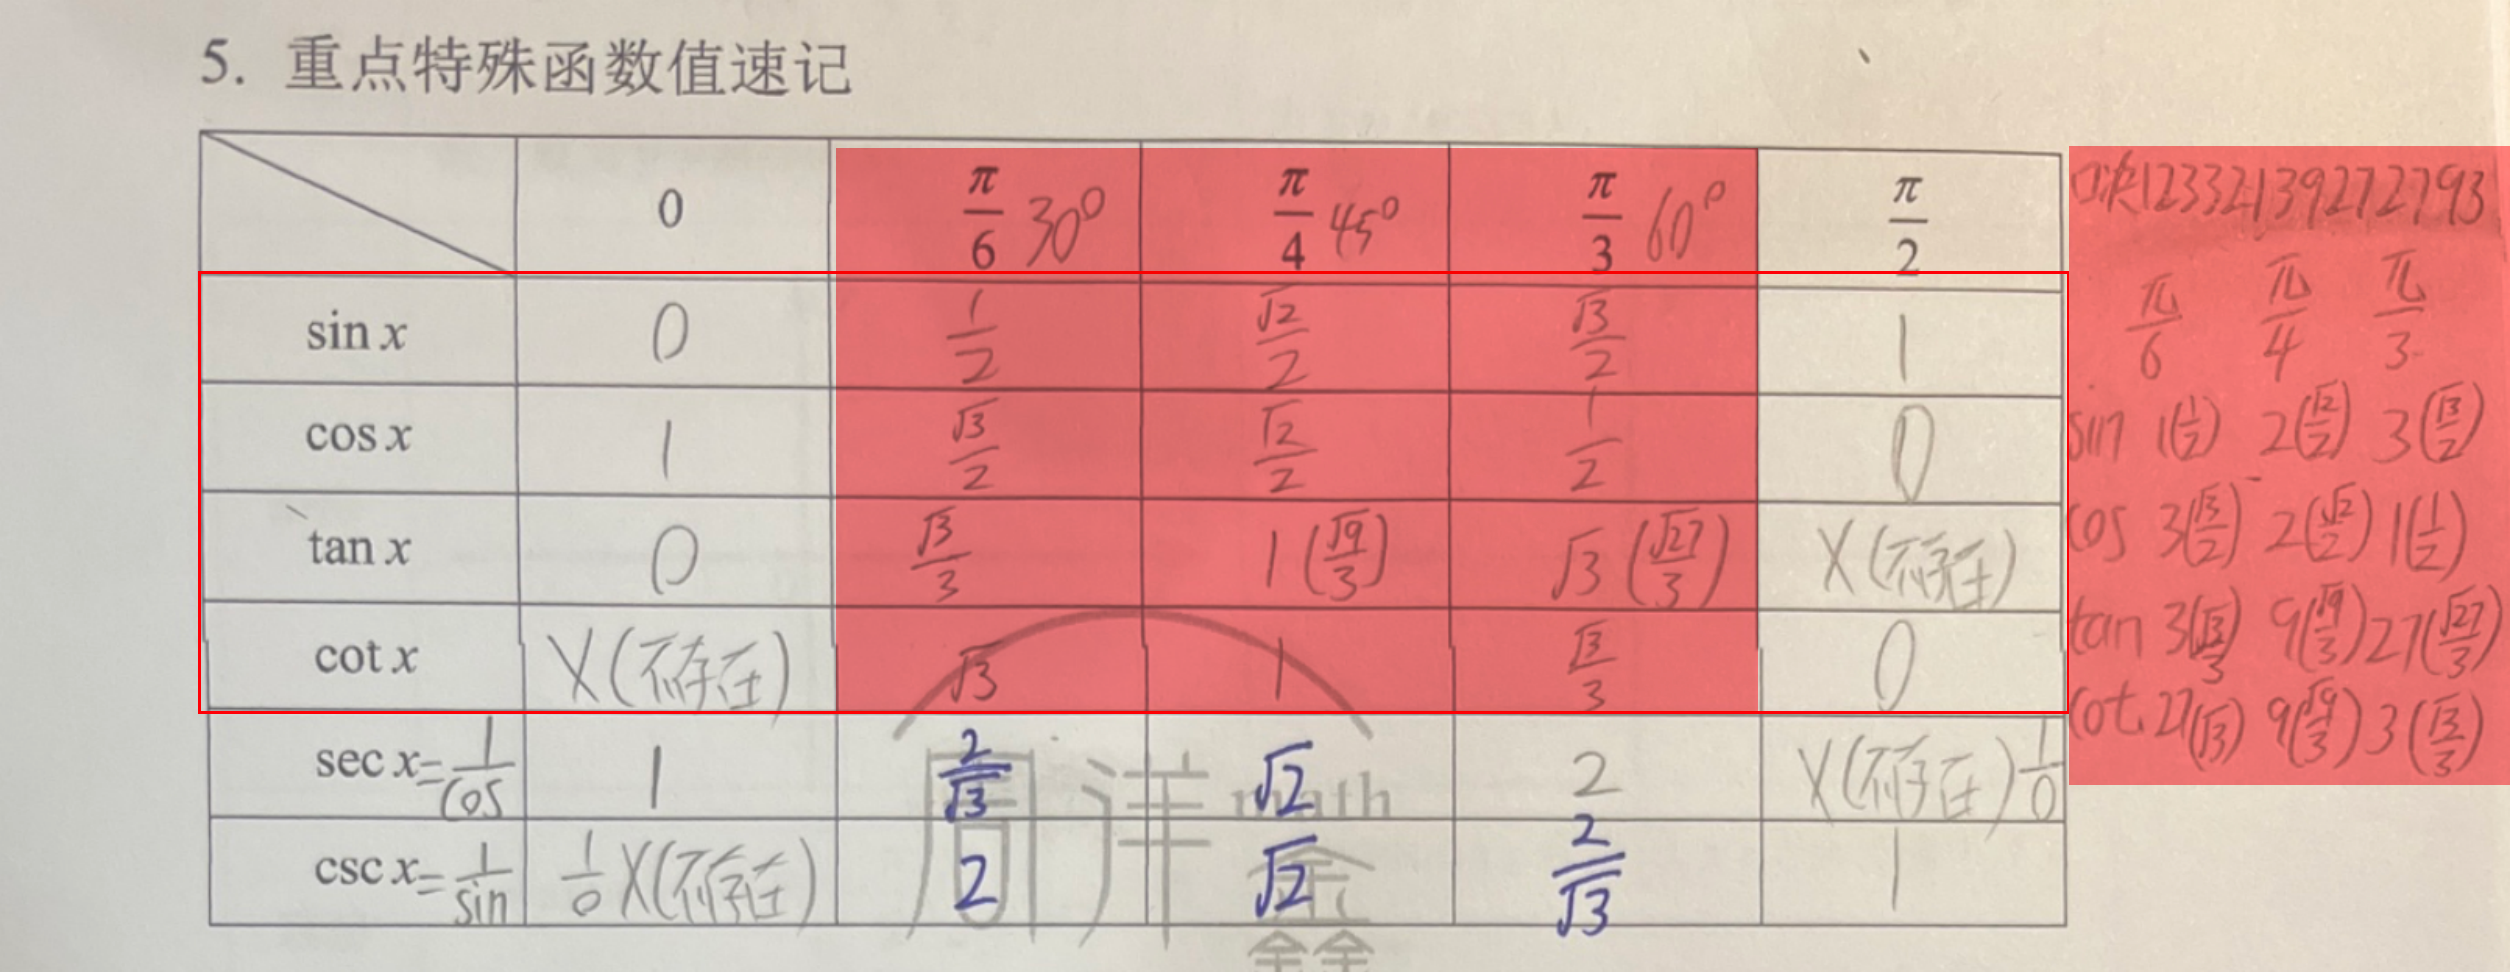 5. 重点特殊函数值速记
0 π/6 30° π/4 45° π/3 60° π/2
sin x 0 1/2 √2/2 √3/2 1
cos x 1 √3/2 √2/2 1/2 0
tan x 0 √3/3 1(√9/3) √3(√27/3) X(不存在)
cot x X(不存在) √3 1 √3/3 0
sec x=1/cos 1 2/√3 √2 2 X(不存在) 1/0
csc x=1/sin 1/0 X(不存在) 2 √2 2/√3 1
口诀12332139272793
π/6 π/4 π/3
sin 1(1/2) 2(√2/2) 3(√3/2)
cos 3(√3/2) 2(√2/2) 1(1/2)
tan 3(√3/3) 9(√9/3) 27(√27/3)
cot. 27(√3) 9(√9/3) 3(√3/3)
周洋math
鑫